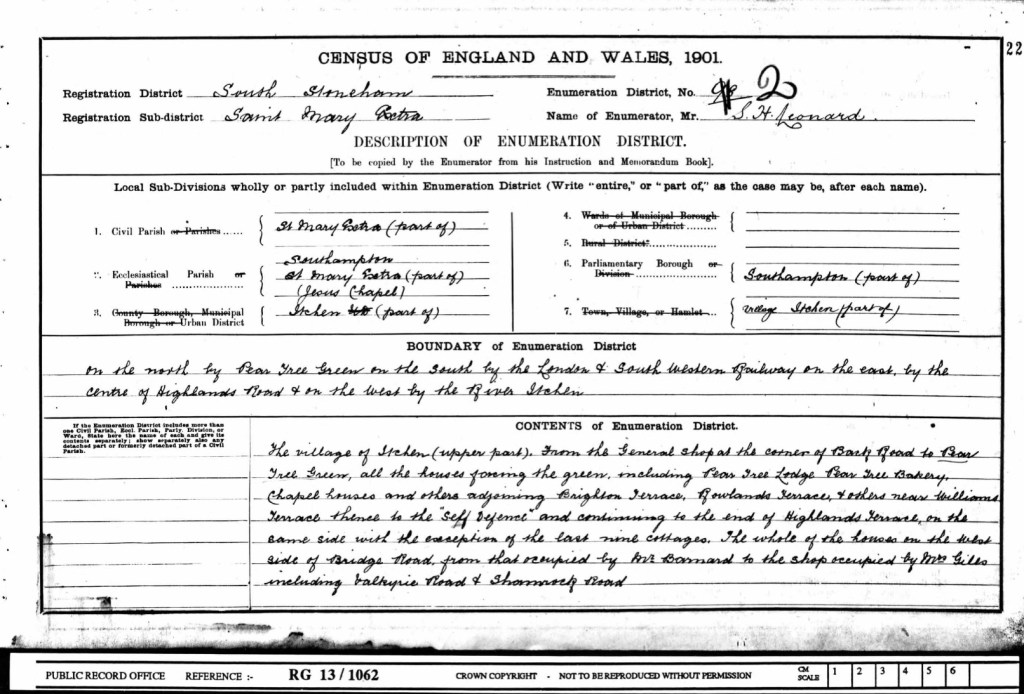 22
CENSUS OF ENGLAND AND WALES, 1901.
Registration District South Stoneham
Enumeration District, No. 2
Registration Sub-district Saint Mary Extra
Name of Enumerator, Mr. S. H. Leonard.
DESCRIPTION OF ENUMERATION DISTRICT.
[To be copied by the Enumerator from his Instruction and Memorandum Book].
Local Sub-Divisions wholly or partly included within Enumeration District (Write "entire," or "part of," as the case may be, after each name).
1. Civil Parish or Parishes ..... St Mary Extra (part of)
2. Ecclesiastical Parish or Parishes ..................
Southampton
St Mary Extra (part of)
(Jesus Chapel)
3. County Borough, Municipal Borough or Urban District
Itchen (part of)
4. Wards of Municipal Borough or of Urban District .........
5. Rural District
6. Parliamentary Borough or Division ..................
Southampton (part of)
7. Town, Village, or Hamlet... Village Itchen (part of)
BOUNDARY of Enumeration District
on the north by Pear Tree Green on the South by the London & South Western Railway on the east, by the
centre of Highlands Road & on the West by the River Itchen
If the Enumeration District includes more than
one Civil Parish, Eccl. Parish, Party. Division, or
Ward, State here the name of each and give its
contents separately; show separately also any
detached part or formerly detached part of a Civil
Parish.
CONTENTS of Enumeration District.
The village of Itchen (upper part). From the General Shop at the corner of Back Road to Pear
Tree Green, all the houses facing the green, including Pear Tree Lodge Pear Tree Bakery,
Chapel houses and others adjoining Brighton Terrace, Rowlands Terrace, & others near Williams
Terrace thence to the "Self Defence" and continuing to the end of Highlands Terrace, on the
same side with the exception of the last nine cottages. The whole of the houses on the West
side of Bridge Road, from that occupied by Mr Barnard to the shop occupied by Mrs Giles
including Valkyrie Road & Shamrock Road
PUBLIC RECORD OFFICE REFERENCE :- RG 13/1062 CROWN COPYRIGHT - NOT TO BE REPRODUCED WITHOUT PERMISSION CM SCALE 1 2 3 4 5 6